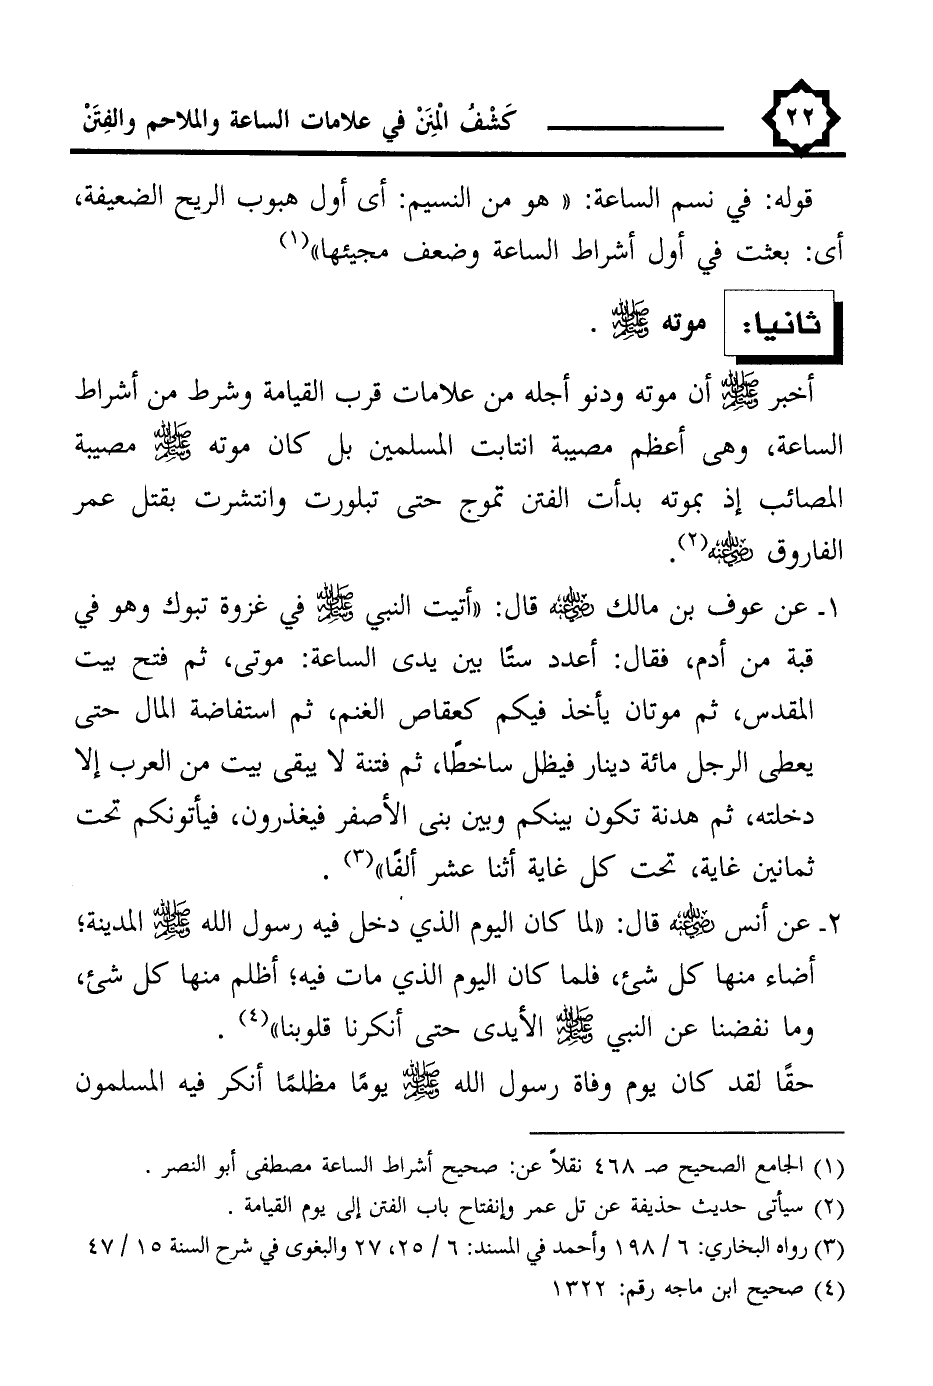 ٢٢ كَشْفُ الْمِنَنْ في علامات الساعة والملاحم والفِتَنْ
قوله: في نسم الساعة: « هو من النسيم: أى أول هبوب الريح الضعيفة،
أى: بعثت في أول أشراط الساعة وضعف مجيئها»(١)
ثانيا: موته ﷺ .
أخبر ﷺ أن موته ودنو أجله من علامات قرب القيامة وشرط من أشراط
الساعة، وهى أعظم مصيبة انتابت المسلمين بل كان موته ﷺ مصيبة
المصائب إذ بموته بدأت الفتن تموج حتى تبلورت وانتشرت بقتل عمر
الفاروق رضي الله عنه(٢).
١ـ عن عوف بن مالك رضي الله عنه قال: «أتيت النبي ﷺ في غزوة تبوك وهو في
قبة من أدم، فقال: أعدد ستًا بين يدى الساعة: موتى، ثم فتح بيت
المقدس، ثم موتان يأخذ فيكم كعقاص الغنم، ثم استفاضة المال حتى
يعطى الرجل مائة دينار فيظل ساخطًا، ثم فتنة لا يبقى بيت من العرب إلا
دخلته، ثم هدنة تكون بينكم وبين بنى الأصفر فيغذرون، فيأتونكم تحت
ثمانين غاية، تحت كل غاية أثنا عشر ألفًا»(٣) .
٢ـ عن أنس رضي الله عنه قال: «لما كان اليوم الذي دخل فيه رسول الله ﷺ المدينة؛
أضاء منها كل شئ، فلما كان اليوم الذي مات فيه؛ أظلم منها كل شئ،
وما نفضنا عن النبي ﷺ الأيدى حتى أنكرنا قلوبنا»(٤) .
حقًا لقد كان يوم وفاة رسول الله ﷺ يومًا مظلمًا أنكر فيه المسلمون
(١) الجامع الصحيح صـ ٤٦٨ نقلاً عن: صحيح أشراط الساعة مصطفى أبو النصر .
(٢) سيأتى حديث حذيفة عن تل عمر وإنفتاح باب الفتن إلى يوم القيامة .
(٣) رواه البخاري: ٦ / ١٩٨ وأحمد في المسند: ٦ / ٢٥، ٢٧ والبغوى في شرح السنة ١٥ / ٤٧
(٤) صحيح ابن ماجه رقم: ١٣٢٢